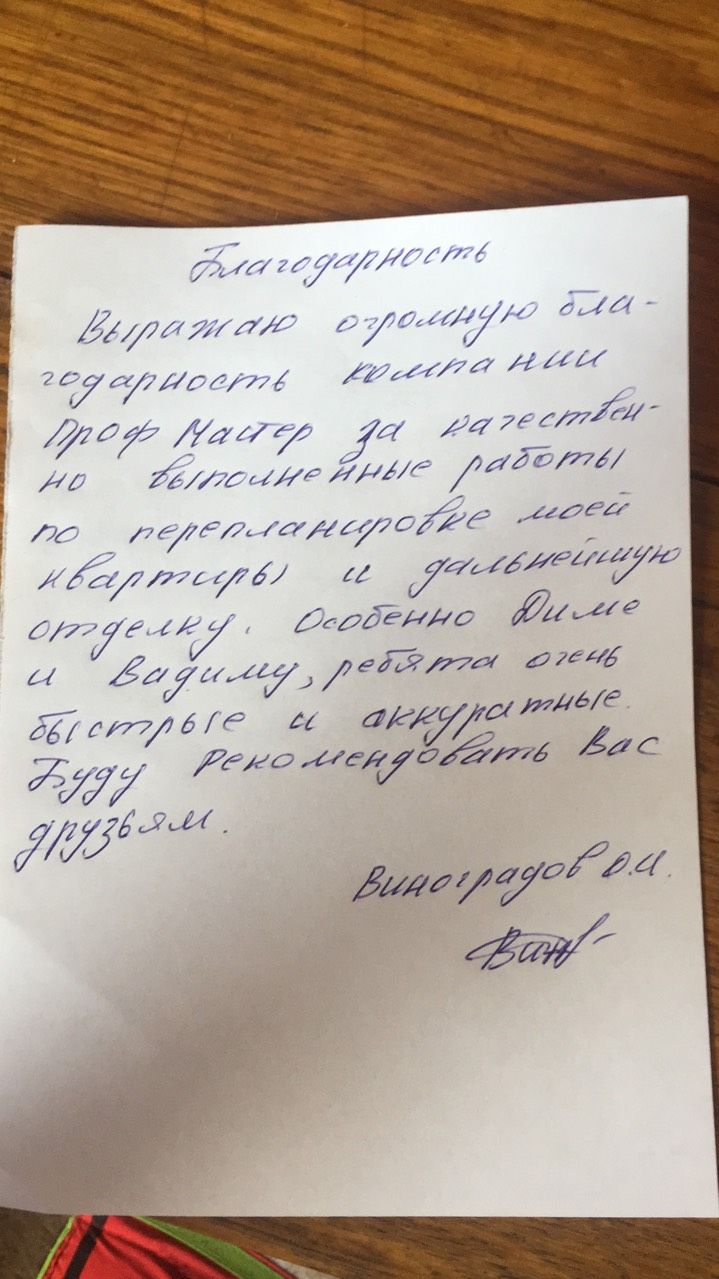 Благодарность
Выражаю огромную бла-
годарность компании
Проф Мастер за качествен-
но выполненные работы
по перепланировке моей
квартиры и дальнейшую
отделку. Особенно Диме
и Вадиму, ребята очень
быстрые и аккуратные.
Буду Рекомендовать Вас
друзьям.
Виноградов О.И.